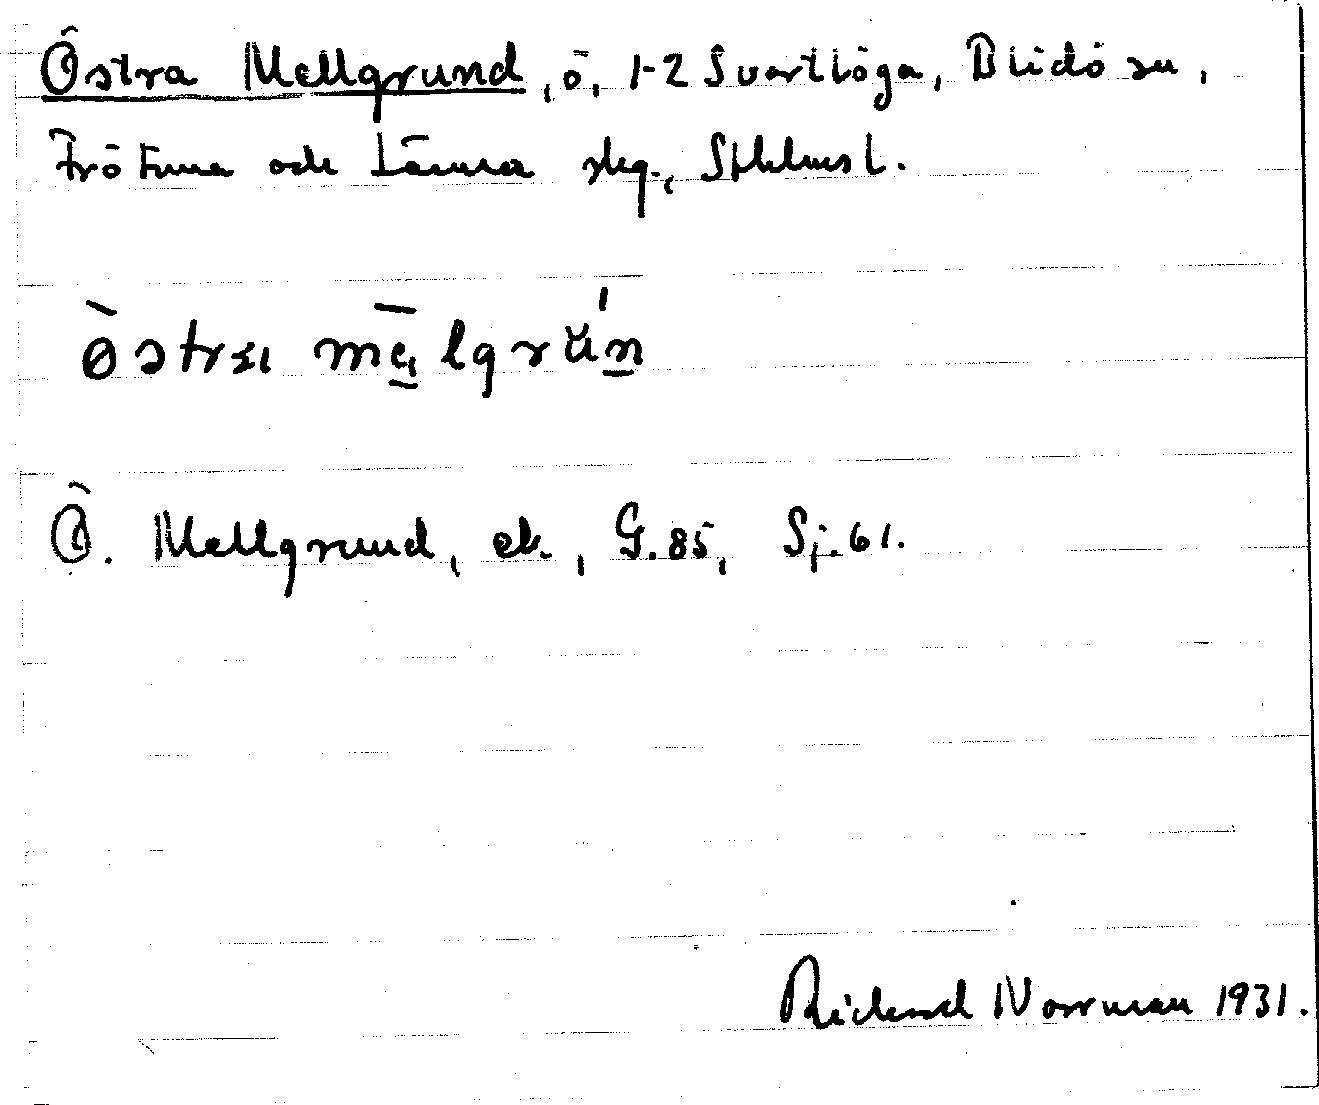 Östra Mellgrund, ö, 1-2 Svartlöga, Blidö sn,
Frötuna och Länna skg., Sthlms l.
Ö. Mellgrund, ek., G.85, Sj.61.
Rickard Norrman 1931.